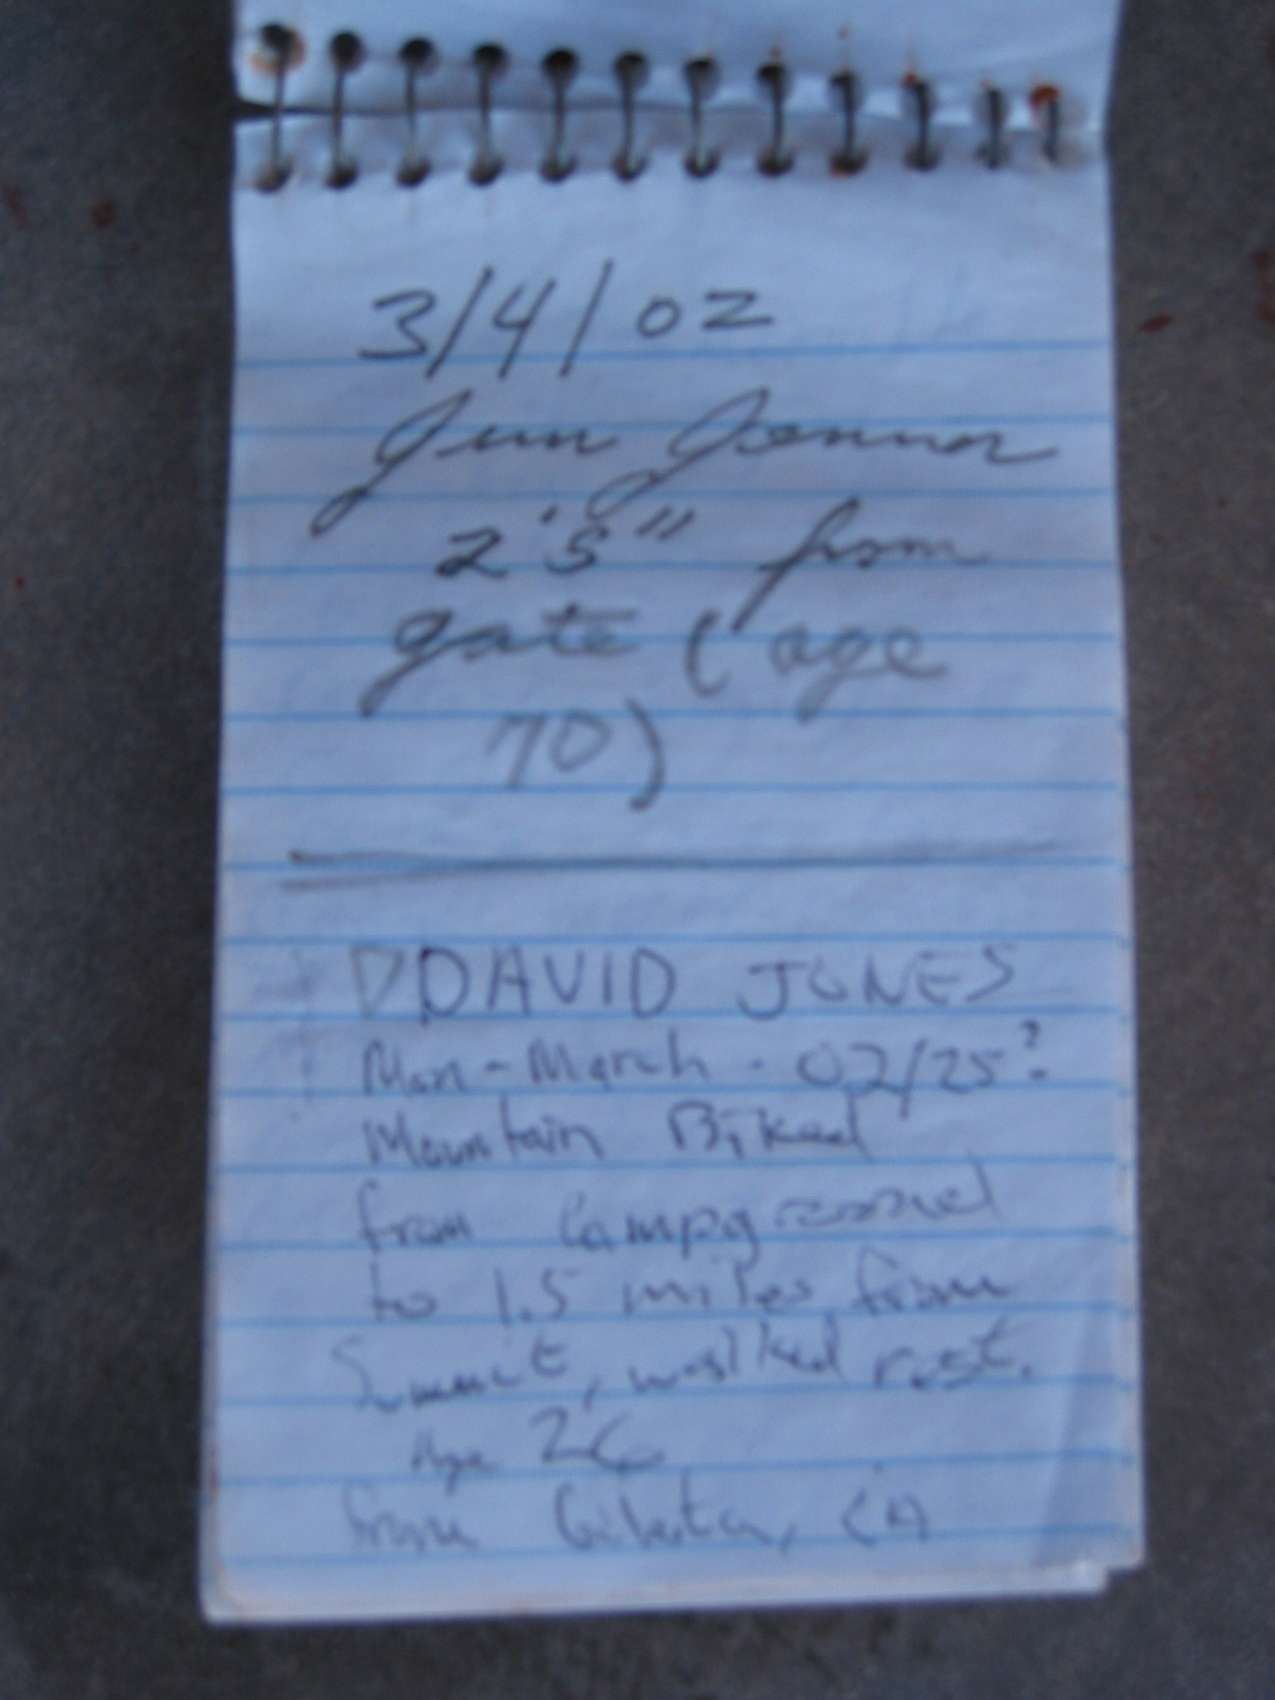 3/4/02
2'5" from
gate (age
70)
DDAVID JONES
Mon-March - 02/25?
Mountain Biked
from Campground
to 1.5 miles from
Summit, walked rest.
Age 26
from CA